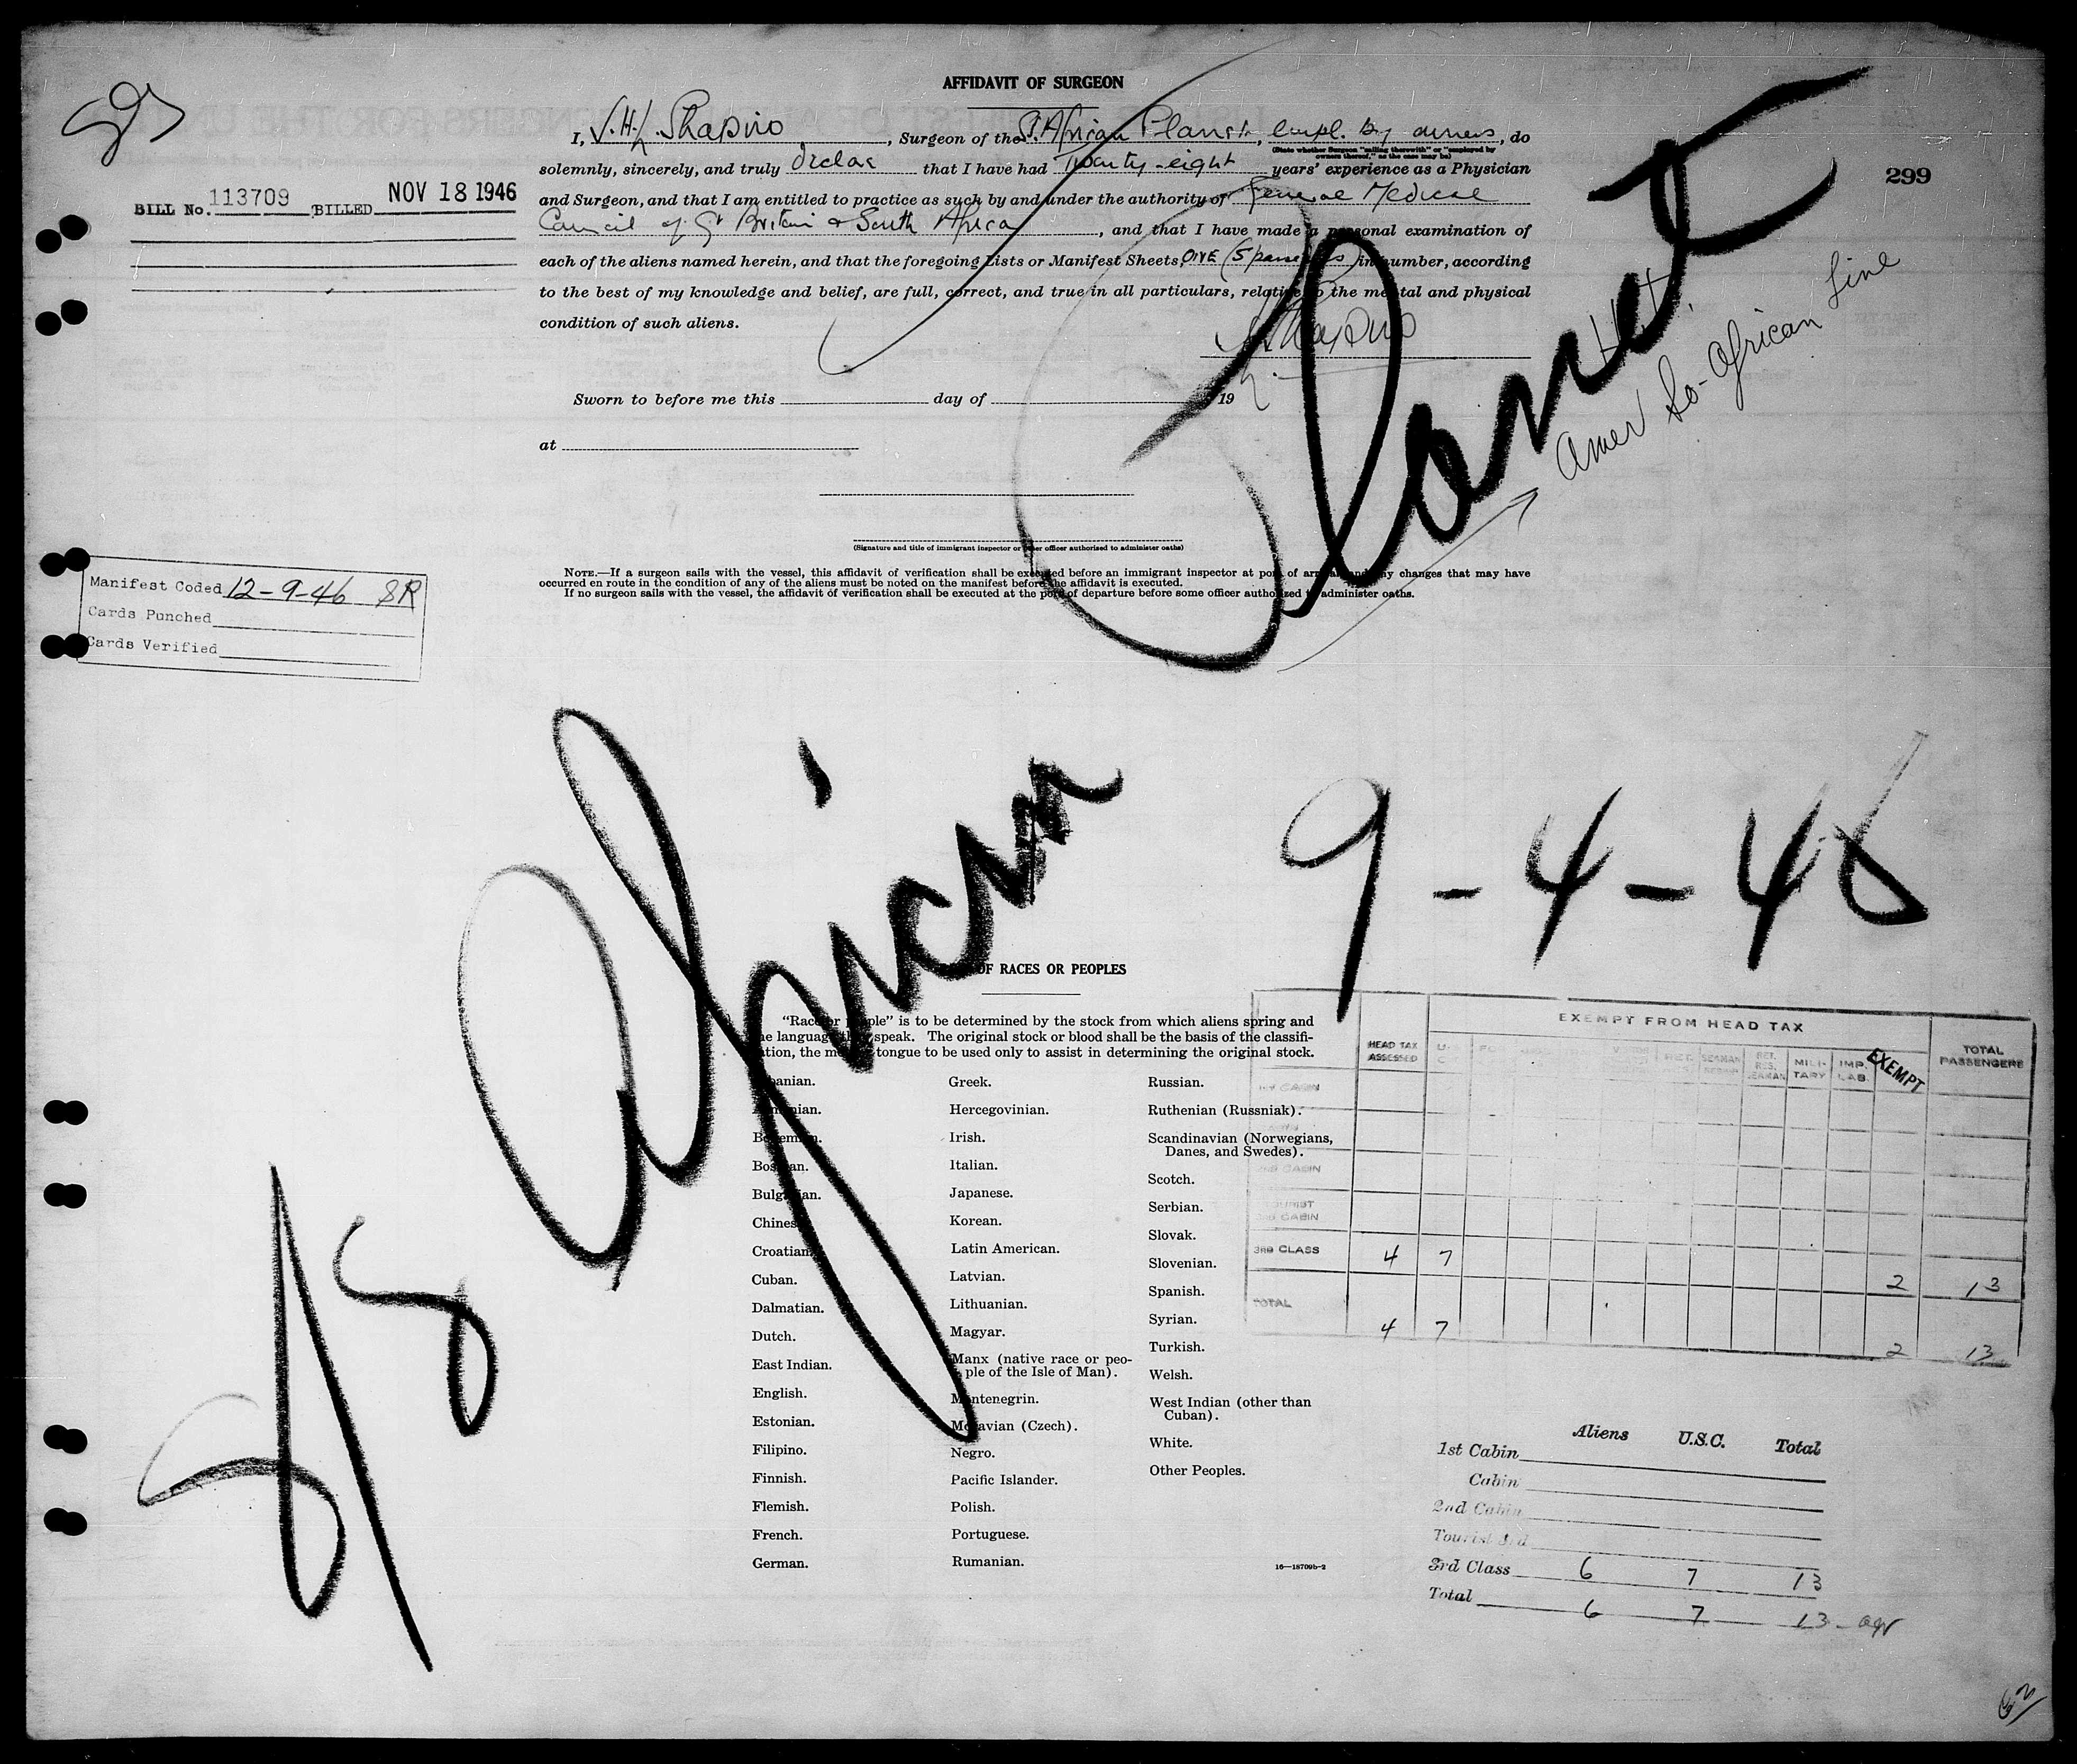 AFFIDAVIT OF SURGEON
I, J.H. Shapiro, Surgeon of the S. African Planet, empl. by owners, do
(State whether Surgeon "sailing therewith" or "employed by owners thereof," as the case may be)
solemnly, sincerely, and truly declare that I have had Twenty-eight years' experience as a Physician
and Surgeon, and that I am entitled to practice as such by and under the authority of General Medical
Council of Gt Britain & South Africa, and that I have made a personal examination of
each of the aliens named herein, and that the foregoing Lists or Manifest Sheets, ONE (5 passengers) in number, according
to the best of my knowledge and belief, are full, correct, and true in all particulars, relative to the mental and physical
condition of such aliens.
Shapiro
Sworn to before me this day of 19
at
(Signature and title of immigrant inspector or other officer authorized to administer oaths)
NOTE.—If a surgeon sails with the vessel, this affidavit of verification shall be executed before an immigrant inspector at port of arrival, and any changes that may have
occurred en route in the condition of any of the aliens must be noted on the manifest before the affidavit is executed.
If no surgeon sails with the vessel, the affidavit of verification shall be executed at the port of departure before some officer authorized to administer oaths.
BILL No. 113709 BILLED NOV 18 1946
299
Manifest Coded 12-9-46 SR
Cards Punched
Cards Verified
Amer So-African Line
SS African Planet
9-4-46
OF RACES OR PEOPLES
"Race or people" is to be determined by the stock from which aliens spring and
the language they speak. The original stock or blood shall be the basis of the classifi-
cation, the mother tongue to be used only to assist in determining the original stock.
Albanian.
Armenian.
Bohemian.
Bosnian.
Bulgarian.
Chinese.
Croatian.
Cuban.
Dalmatian.
Dutch.
East Indian.
English.
Estonian.
Filipino.
Finnish.
Flemish.
French.
German.
Greek.
Hercegovinian.
Irish.
Italian.
Japanese.
Korean.
Latin American.
Latvian.
Lithuanian.
Magyar.
Manx (native race or peo-
ple of the Isle of Man).
Montenegrin.
Moravian (Czech).
Negro.
Pacific Islander.
Polish.
Portuguese.
Rumanian.
Russian.
Ruthenian (Russniak).
Scandinavian (Norwegians,
Danes, and Swedes).
Scotch.
Serbian.
Slovak.
Slovenian.
Spanish.
Syrian.
Turkish.
Welsh.
West Indian (other than
Cuban).
White.
Other Peoples.
16—18709b-2
EXEMPT FROM HEAD TAX
HEAD TAX ASSESSED U.S.C. RET. RES. SEAMAN MILI-TARY IMP. LAB. EXEMPT TOTAL PASSENGERS
1st CABIN
CABIN
2ND CABIN
TOURIST
3RD CABIN
3RD CLASS 4 7 2 13
TOTAL 4 7 2 13
Aliens U.S.C. Total
1st Cabin
Cabin
2nd Cabin
Tourist 3rd
3rd Class 6 7 13
Total 6 7 13